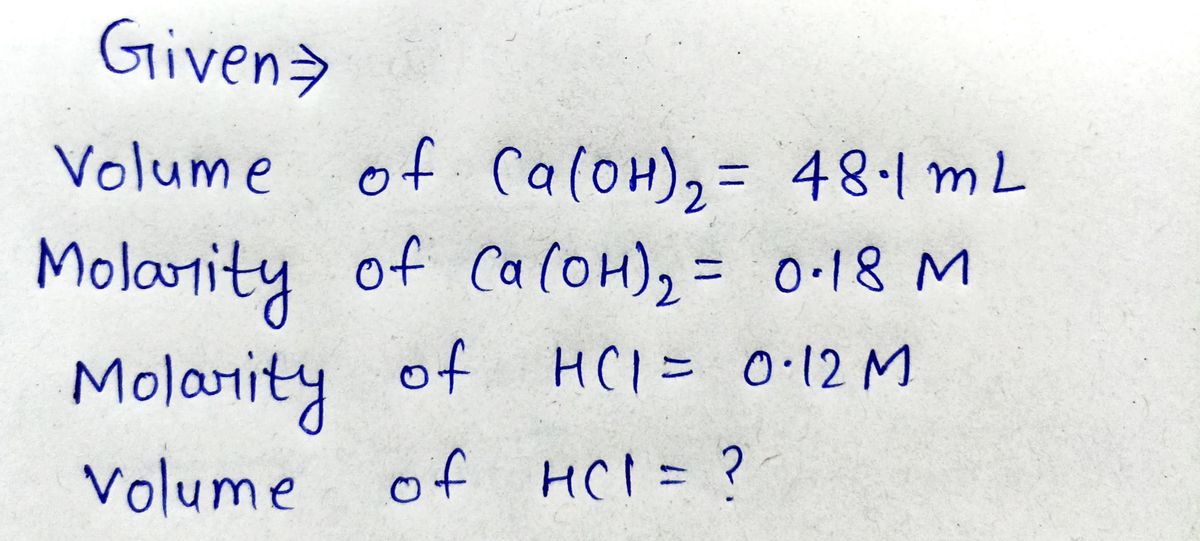 Given⇒
Volume of Ca(OH)₂ = 48·1 mL
Molarity of Ca(OH)₂ = 0·18 M
Molarity of HCl = 0·12 M
Volume of HCl = ?